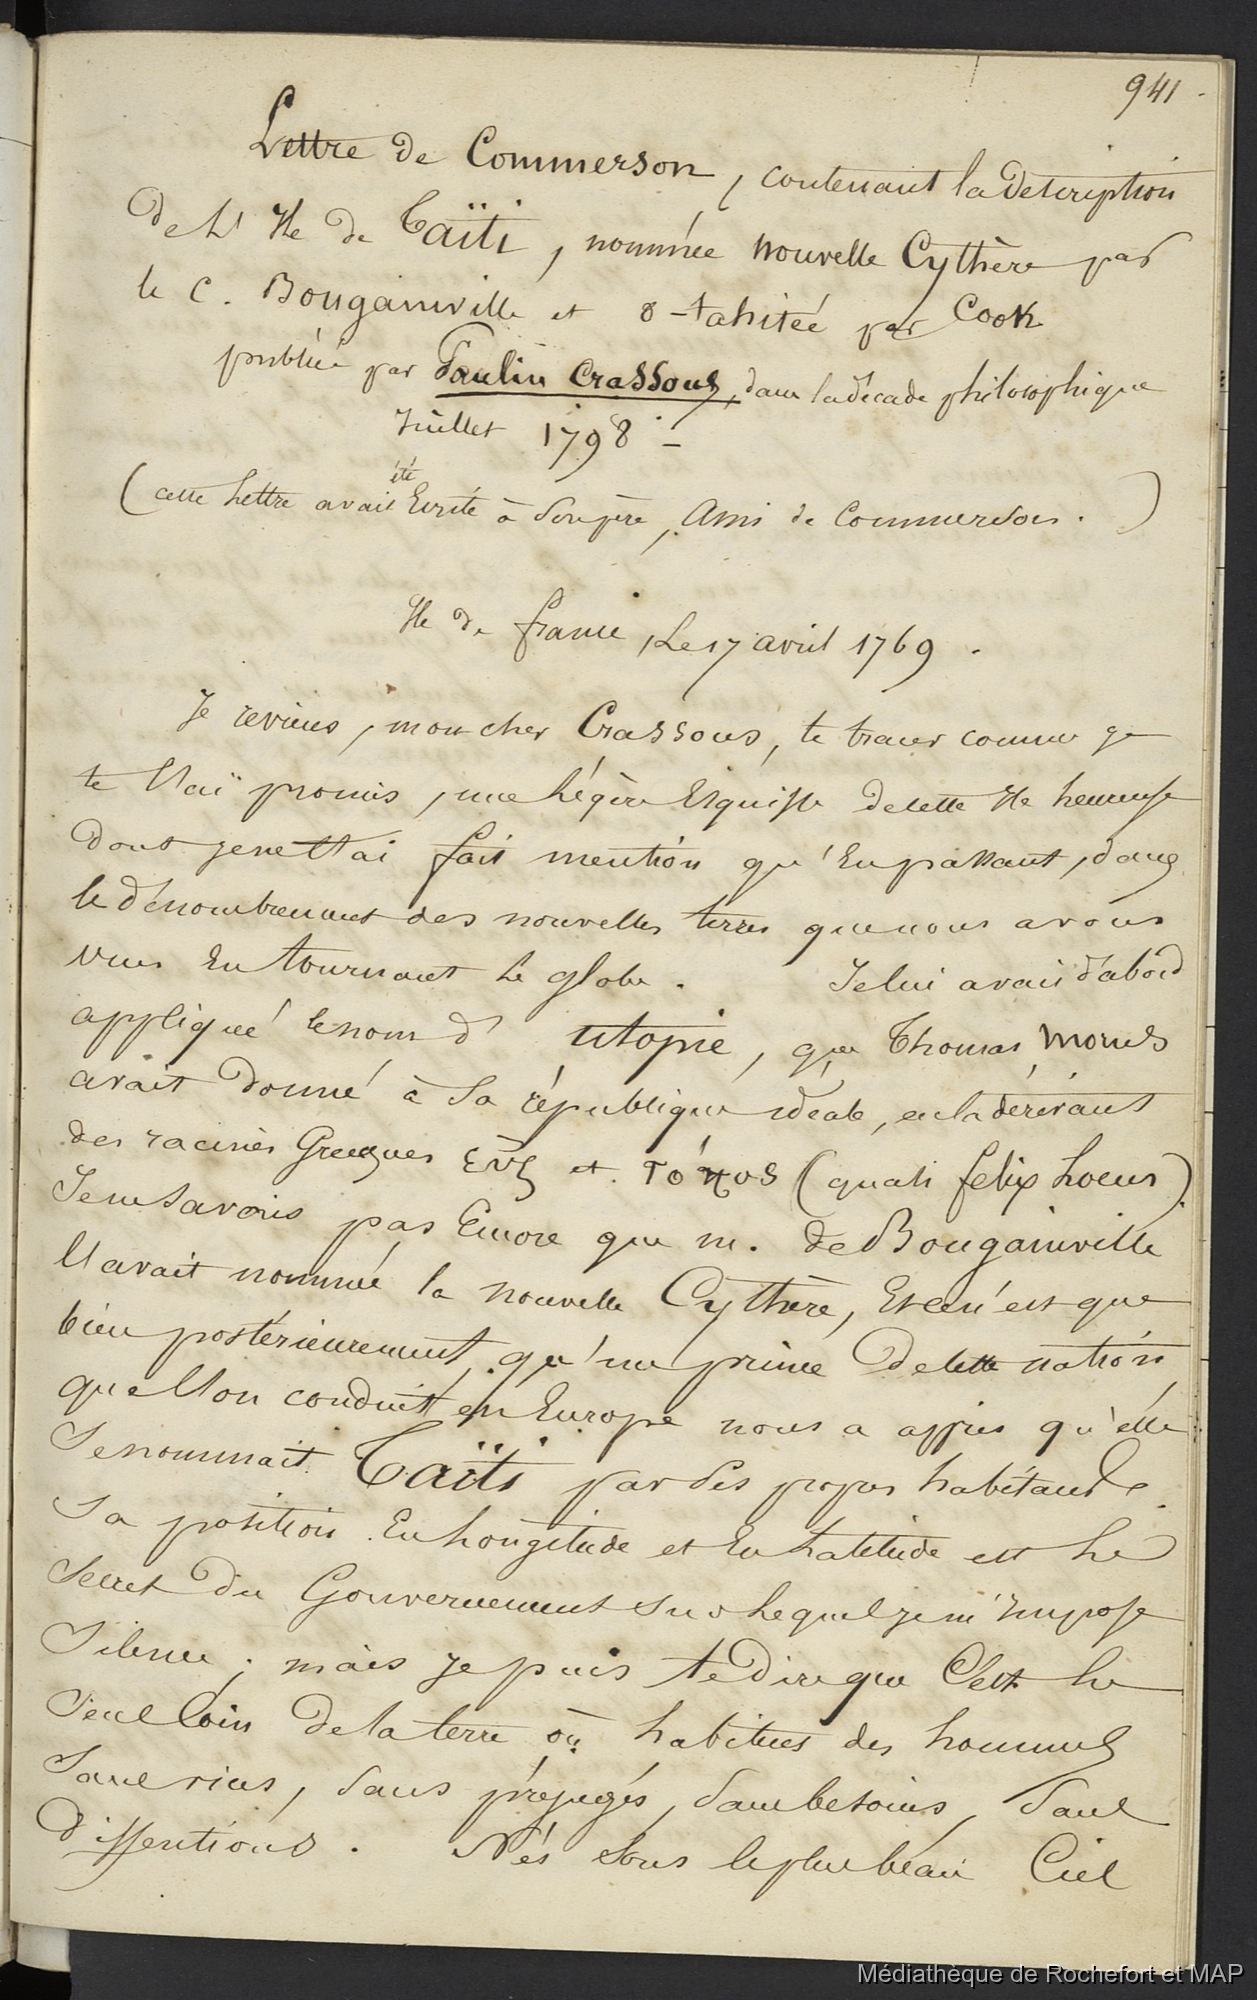 941
Lettre de Commerson, contenant la description
de L' Ile de Taïti, nommée nouvelle Cythère par
le C. Bougainville et o-tahitée par Cook
publiée par Paulin Crassous, dans la décade philosophique
Juillet 1798 –
(cette Lettre avait été Ecrite à son père, Ami de Commerson.)
Ile de france, Le 17 avril 1769.
Je reviens, mon cher Crassous, te tracer comme je
te l'ai promis, une Légère Esquisse de cette Ile heureuse
dont je ne t'ai fait mention qu'En passant, dans
le dénombrement des nouvelles terres que nous avons
vues En tournant Le globe. Je lui avais d'abord
appliqué le nom d' utopie, que Thomas Morus
avait donné à Sa république idéale, en la dérivant
des racines Grecques Eυς et τόπος (quasi felix Locus).
Je ne Savois pas Encore que m. de Bougainville
l'avait nommée la nouvelle Cythère, Et ce n'est que
bien postérieurement, qu'un prince De cette nation,
que l'on conduit en Europe nous a appris qu'elle
Se nommait Taïti par Ses propres habitants.
Sa position En Longitude et En Latitude est Le
Secret du Gouvernement Sur Lequel je m'Impose
Silence; mais je puis te Dire que C'est Le
Seul Coin de la terre où habitent des hommes
Sans vices, Sans préjugés, Sans besoins, Sans
dissentions. Nés Sous le plus beau Ciel
Médiathèque de Rochefort et MAP